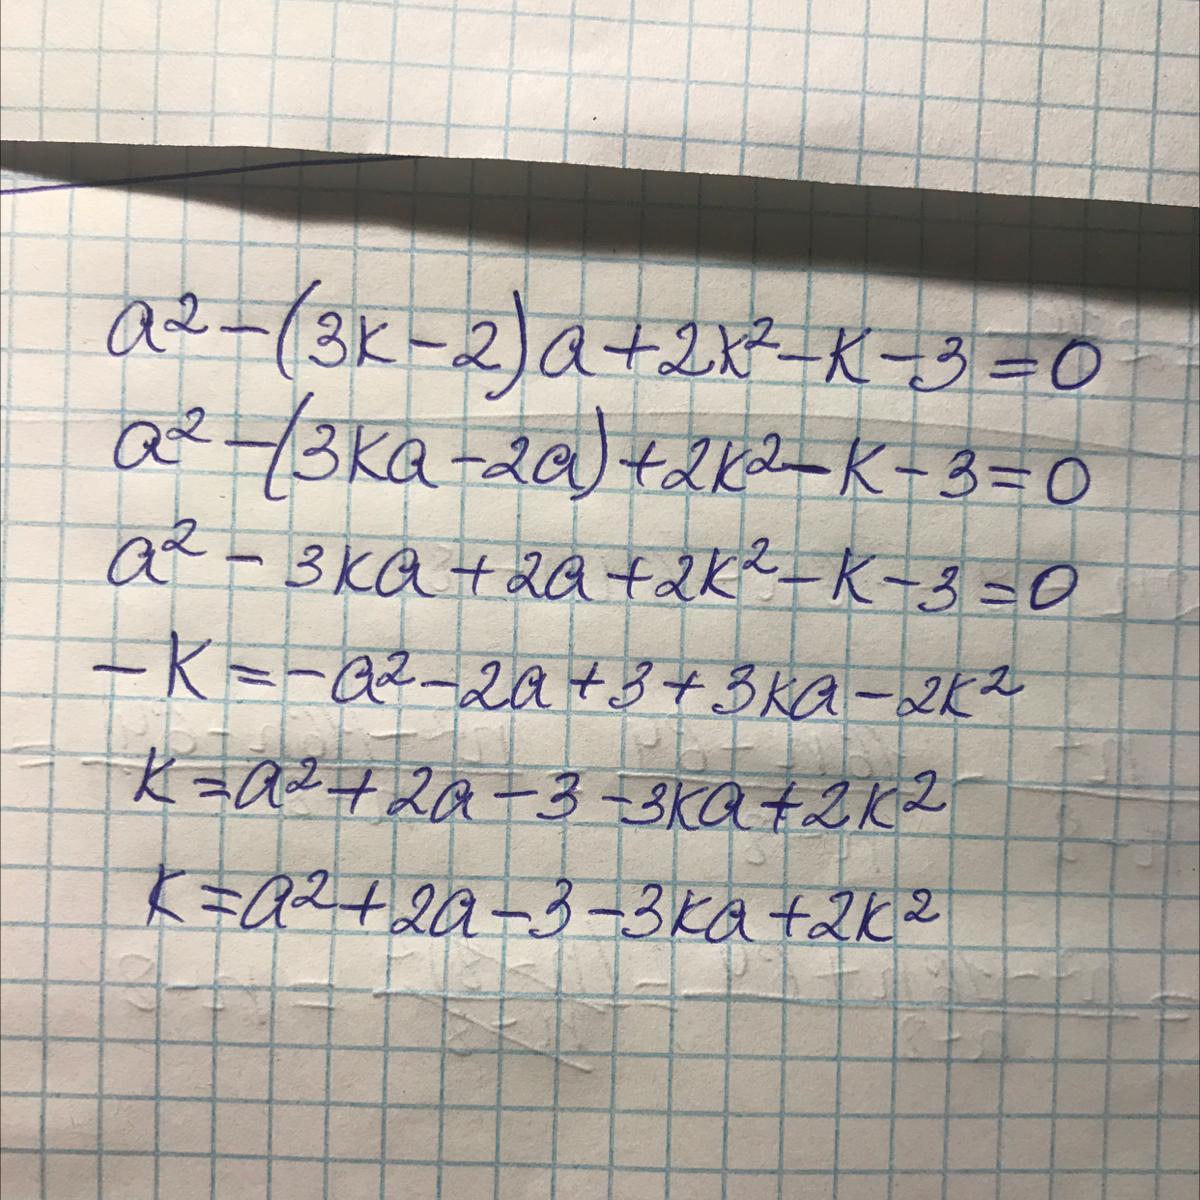 a² - (3k - 2)a + 2k² - k - 3 = 0
a² - (3ka - 2a) + 2k² - k - 3 = 0
a² - 3ka + 2a + 2k² - k - 3 = 0
- k = -a² - 2a + 3 + 3ka - 2k²
k = a² + 2a - 3 - 3ka + 2k²
k = a² + 2a - 3 - 3ka + 2k²